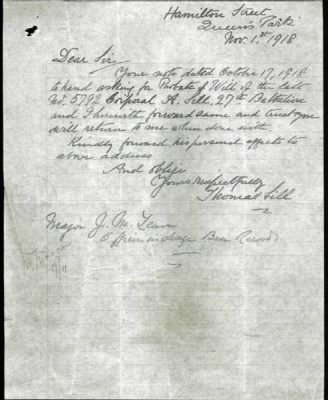 Hamilton Street
Queen's Park
Nov. 1st 1918
Dear Sir
Your note dated October 17, 1918
to hand asking for Probate of Will of the late
No. 5792 Corporal A. Sill, 27th Battalion
and I herewith forward same and trust you
will return to me when done with
Kindly forward his personal effects to
above address
And oblige
Yours respectfully
Thomas Sill
Major J. M. Lean
Officer in charge Base Records